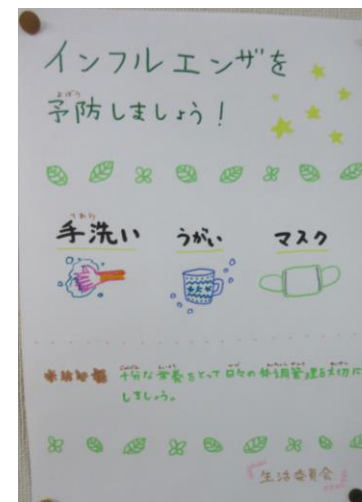 インフルエンザを
予防しましょう！
手洗い
うがい
マスク
十分な栄養をとって日々の体調管理を大切に
しましょう。
生活委員会